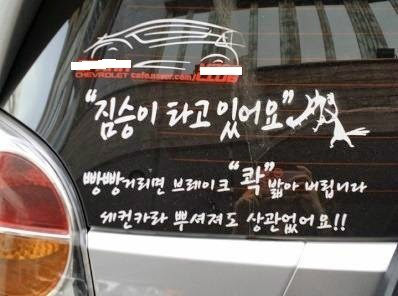 CHEVROLET cafe.naver.com/ CLUB
"짐승이 타고 있어요"
빵빵거리면 브레이크 "콱" 밟아 버립니다
세컨카라 뿌셔져도 상관없어요!!